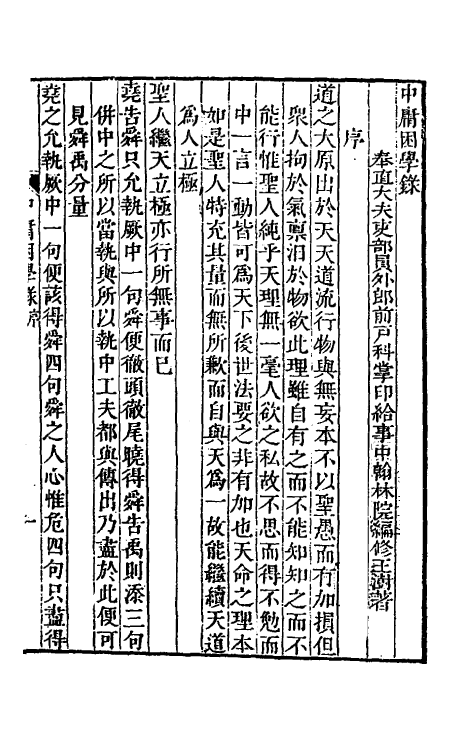 中庸困學錄
奉直大夫吏部員外郎前戶科掌印給事中翰林院編修王澍著
序
道之大原出於天天道流行物與無妄本不以聖愚而有加損但
衆人拘於氣稟汨於物欲此理雖自有之而不能知知之而不
能行惟聖人純乎天理無一毫人欲之私故不思而得不勉而
中一言一動皆可為天下後世法要之非有加也天命之理本
如是聖人特充其量而無所歉而自與天為一故能繼續天道
為人立極
聖人繼天立極亦行所無事而已
堯告舜只允執厥中一句舜便徹頭徹尾曉得舜告禹則添三句
併中之所以當執與所以執中工夫都與傳出乃盡於此便可
見舜禹分量
堯之允執厥中一句便該得舜四句舜之人心惟危四句只盡得
中庸困學錄序
一